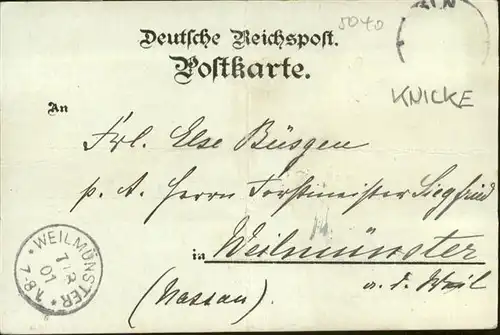 5040
Deutsche Reichspost.
Postkarte.
KNICKE
An
Frl. Else Büsgen
p. A. Herrn Forstmeister Siegfried
in Weilmünster
a. d. Weil
(Nassau)
* WEILMÜNSTER *
01
7-8